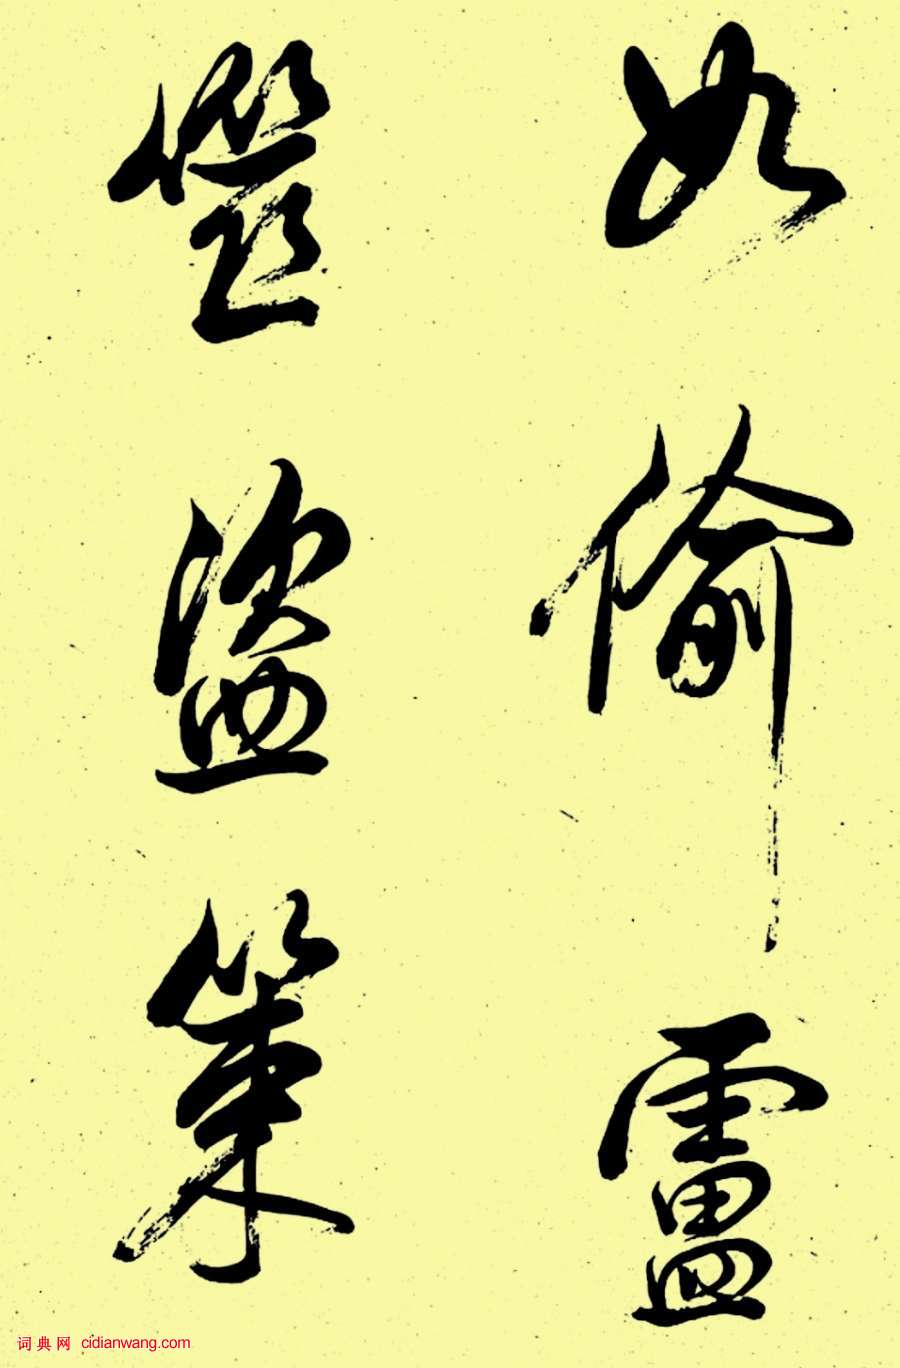 如偷盧
從盜策
词典网 cidianwang.com